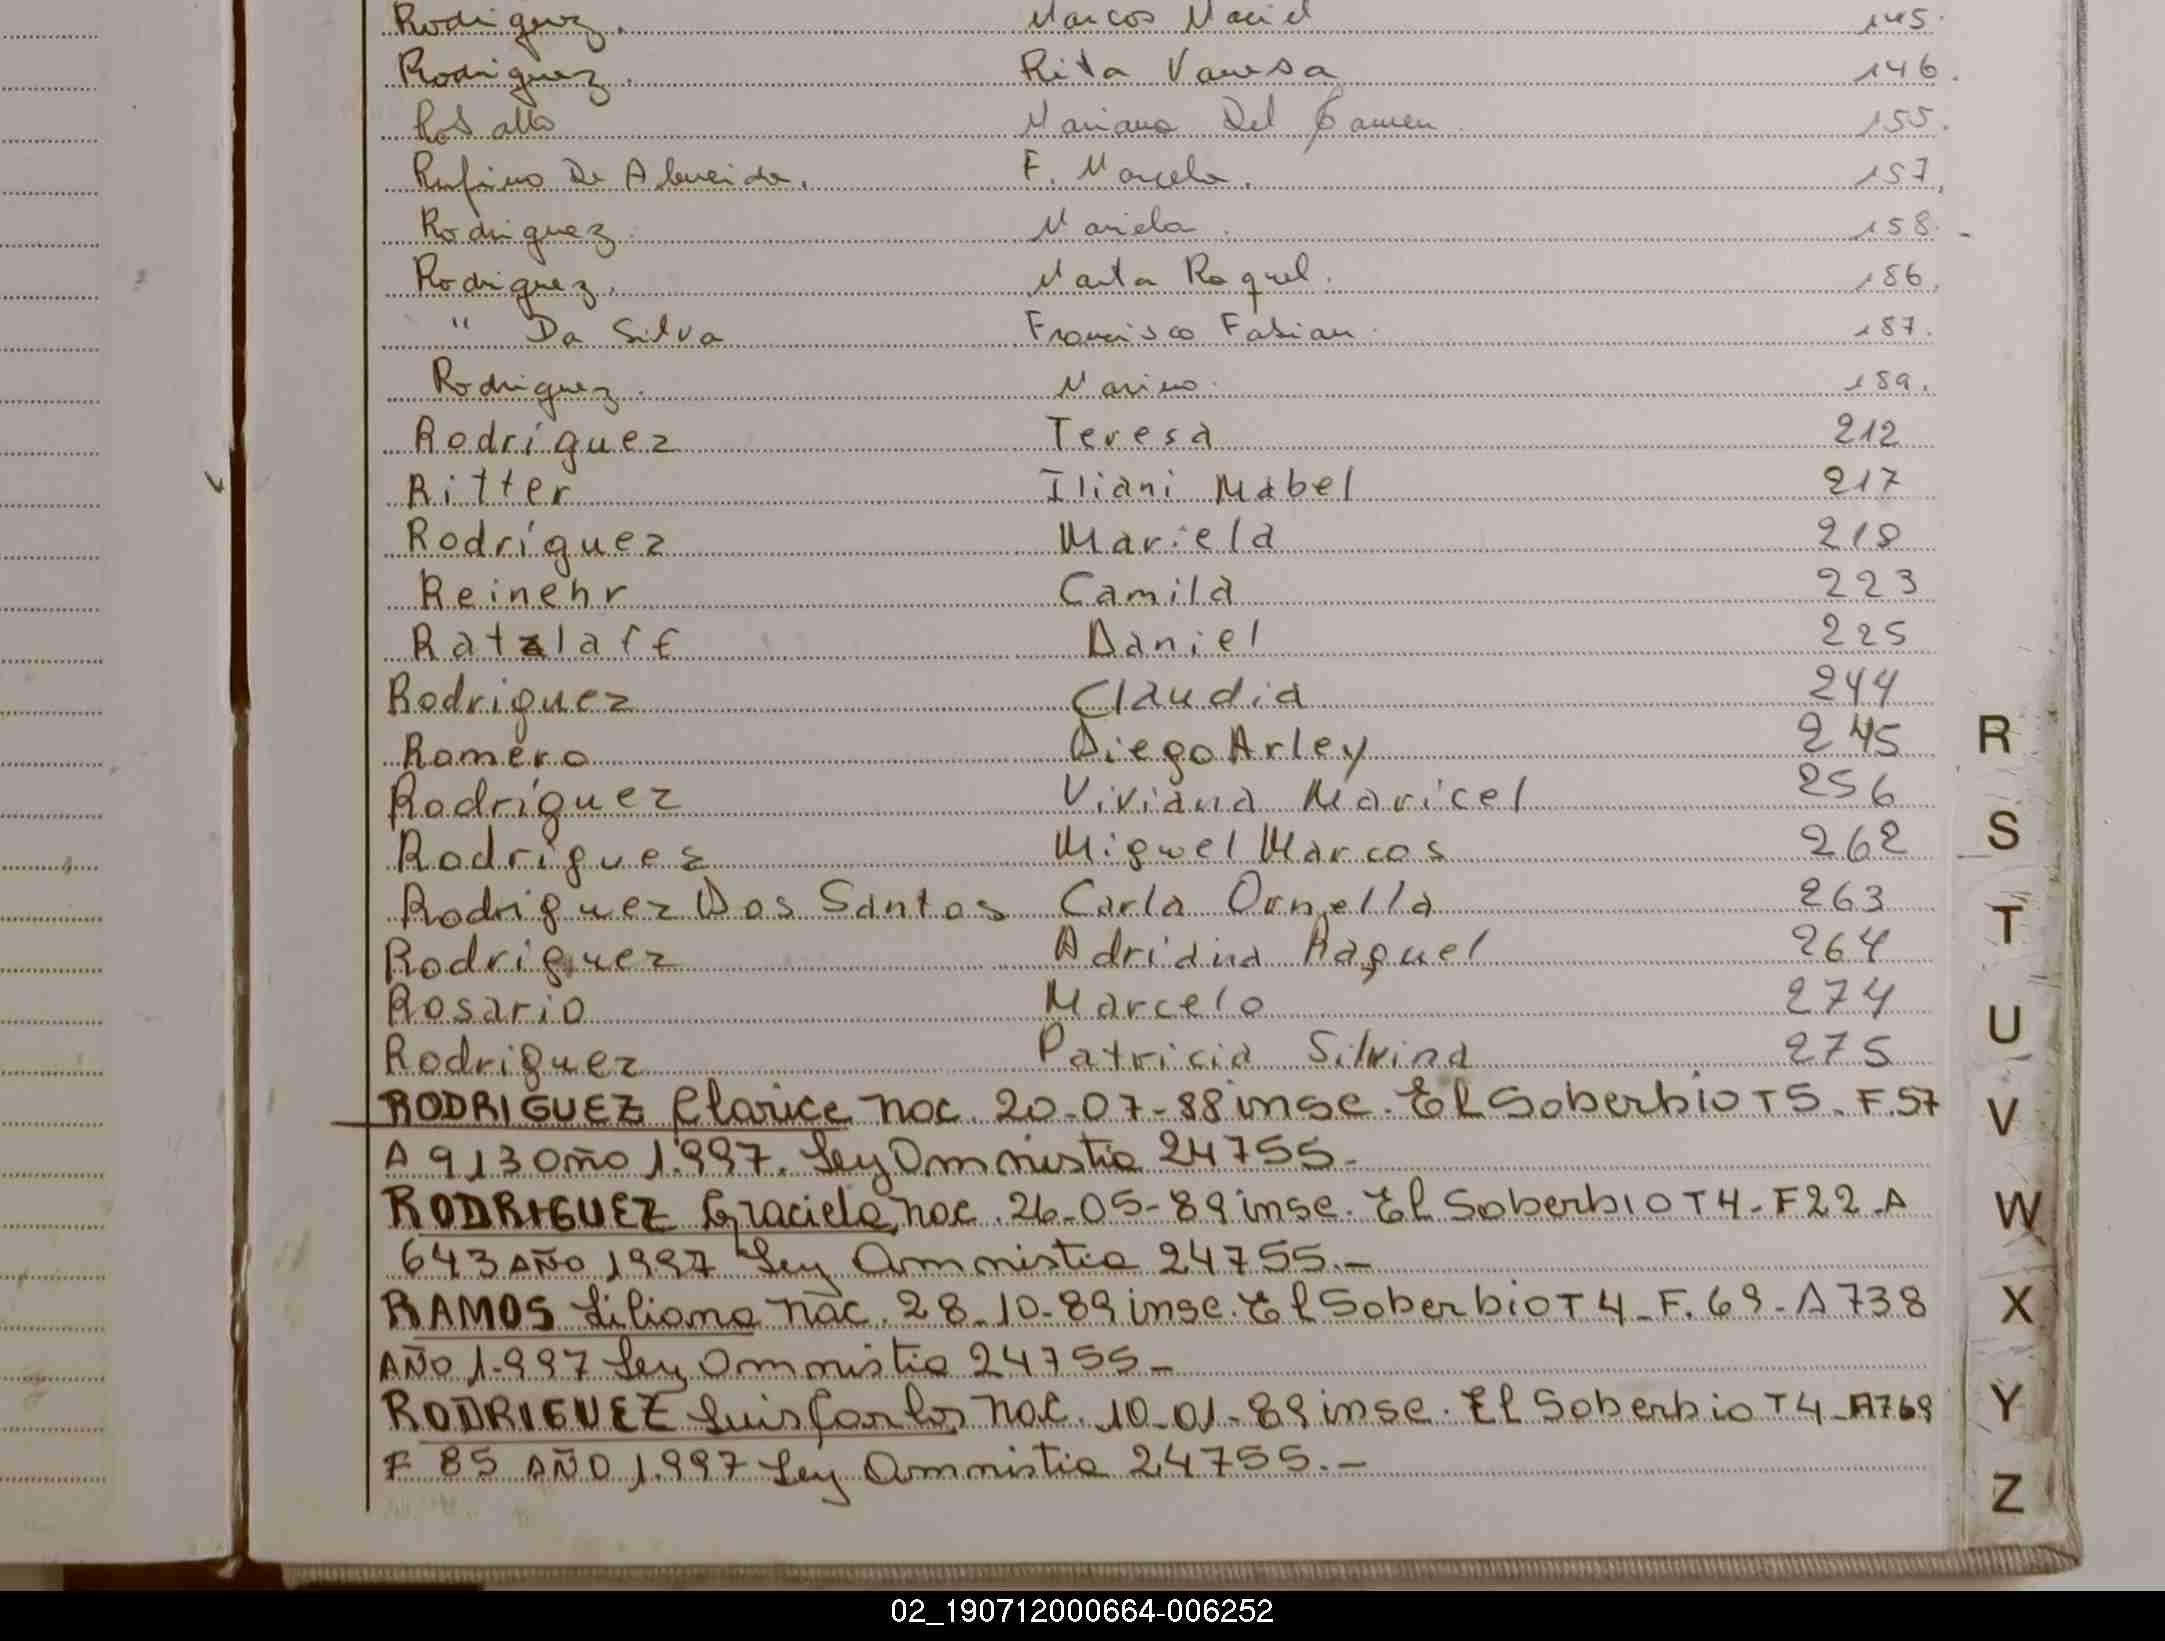 Rodriguez. Marcos Maciel 145.
Rodriguez. Rita Vanesa 146.
Mariana Del Carmen. 155.
Rufino De Almeida. F. Marcela. 157.
Rodriguez. Mariela. 158. -
Rodriguez. Marta Raquel. 186.
" Da Silva Francisco Fabian. 187.
Rodriguez. Marino. 189.
Rodríguez Teresa 212
Ritter Iliani Mabel 217
Rodríguez Mariela 218
Reinehr Camila 223
Ratzlaff Daniel 225
Rodriguez Claudia 244
Romero Diego Arley 245
Rodríguez Viviana Maricel 256
Rodrígues Miguel Marcos 262
Rodriguez Dos Santos Carla Ornella 263
Rodríguez Adriana Raquel 264
Rosario Marcelo 274
Rodriguez Patricia Silvina 275
RODRIGUEZ Clarice nac. 20-07-88 insc. El Soberbio T5. F.57
A 913 año 1.997. Ley Amnistia 24755.-
RODRIGUEZ Graciela nac. 26-05-89 insc. El Soberbio T4-F22-A
643 AÑO 1997 Ley Amnistia 24755.-
RAMOS Liliana nac. 28-10-89 insc. El Soberbio T4-F.69-A738
AÑO 1.997 Ley Amnistia 24755-
RODRIGUEZ Luis Carlos nac. 10-01-89 insc. El Soberbio T4-A769
F 85 AÑO 1.997 Ley Amnistia 24755.-
R
S
T
U
V
W
X
Y
Z
02_190712000664-006252